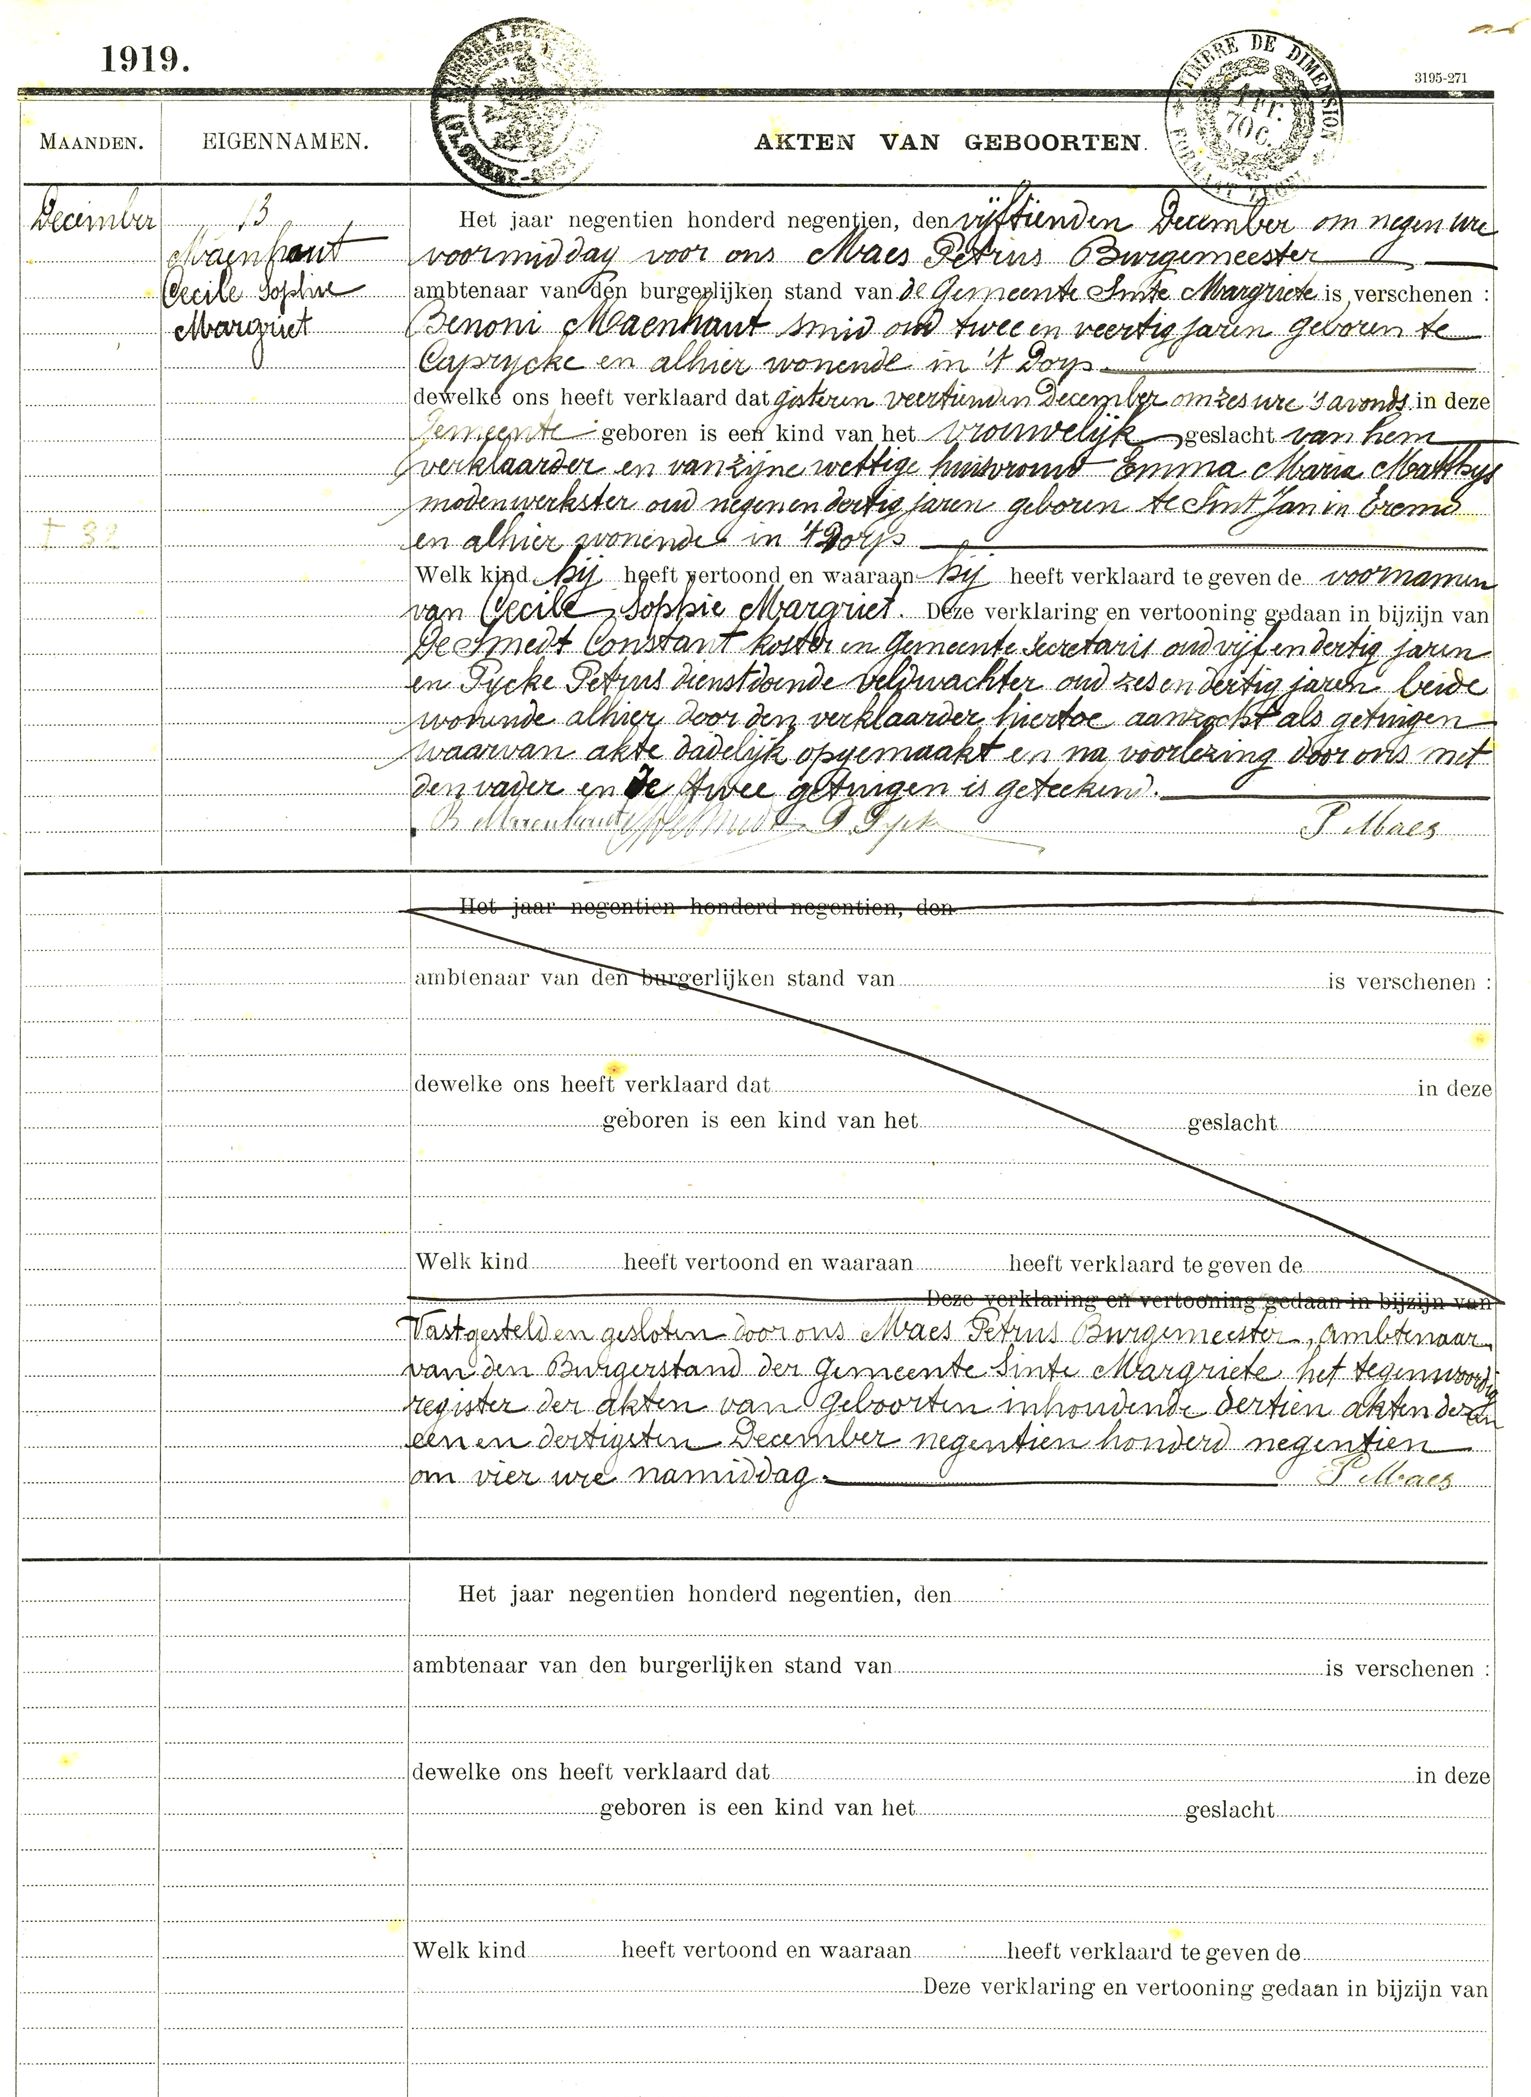 1919.
TIMBRE DE DIMENSION
1 FR. 70 C.
3195-271
MAANDEN.
EIGENNAMEN.
AKTEN VAN GEBOORTEN.
December
13
Maenhaut
Cecile Sophie
Margriet
† 32
Het jaar negentien honderd negentien, den vijftienden December om negen ure
voormiddag voor ons Maes Petrus Burgemeester
ambtenaar van den burgerlijken stand van de Gemeente Sinte Margriete is verschenen :
Benoni Maenhaut smid oud twee en veertig jaren geboren te
Caprycke en alhier wonende in 't Dorp
dewelke ons heeft verklaard dat gisteren veertienden December om zes ure 's avonds in deze
Gemeente geboren is een kind van het vrouwelijk geslacht van hem
verklaarder en van zijne wettige huisvrouw Emma Maria Matthys
modenwerkster oud negen en dertig jaren geboren te Sint Jan in Eremo
en alhier wonende in 't Dorp
Welk kind hij heeft vertoond en waaraan hij heeft verklaard te geven de voornamen
van Cecile Sophie Margriet. Deze verklaring en vertooning gedaan in bijzijn van
De Smedt Constant koster en Gemeente secretaris oud vijf en dertig jaren
en Pycke Petrus dienstdoende veldwachter oud zes en dertig jaren beide
wonende alhier door den verklaarder hiertoe aanzocht als getuigen
waarvan akte dadelijk opgemaakt en na voorlezing door ons met
den vader en de twee getuigen is geteekend.
B Maenhaut C De Smedt P. Pycke P Maes
Het jaar negentien honderd negentien, den
ambtenaar van den burgerlijken stand van is verschenen :
dewelke ons heeft verklaard dat in deze
geboren is een kind van het geslacht
Welk kind heeft vertoond en waaraan heeft verklaard te geven de
Deze verklaring en vertooning gedaan in bijzijn van
Vastgesteld en gesloten door ons Maes Petrus Burgemeester, Ambtenaar
van den Burgerstand der Gemeente Sinte Margriete het tegenwoordig
register der akten van Geboorten inhoudende dertien akten dezen
een en dertigsten December negentien honderd negentien
om vier ure namiddag. P Maes
Het jaar negentien honderd negentien, den
ambtenaar van den burgerlijken stand van is verschenen :
dewelke ons heeft verklaard dat in deze
geboren is een kind van het geslacht
Welk kind heeft vertoond en waaraan heeft verklaard te geven de
Deze verklaring en vertooning gedaan in bijzijn van